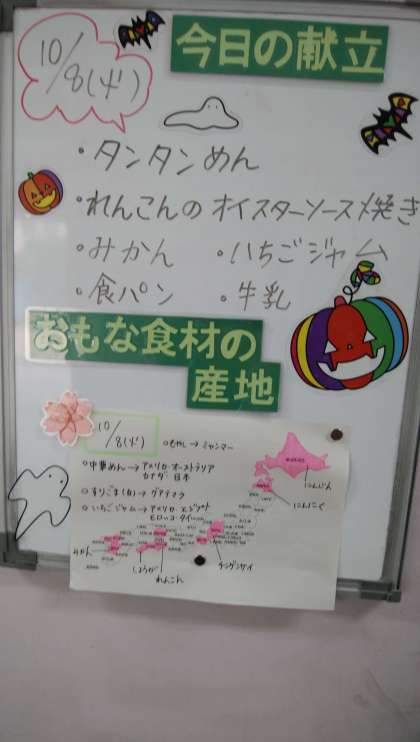 今日の献立
10/8(火)
・タンタンめん
・れんこんのオイスターソース焼き
・みかん ・いちごジャム
・食パン ・牛乳
おもな食材の
産地
10/8(火)
○もやし→ミャンマー
○中華めん→アメリカ・オーストラリア
カナダ・日本
○すりごま(白)→グアテマラ
○いちごジャム→アメリカ・エジプト
モロッコ・タイ
にんじん
にんにく
チンゲンサイ
みかん
しょうが
れんこん